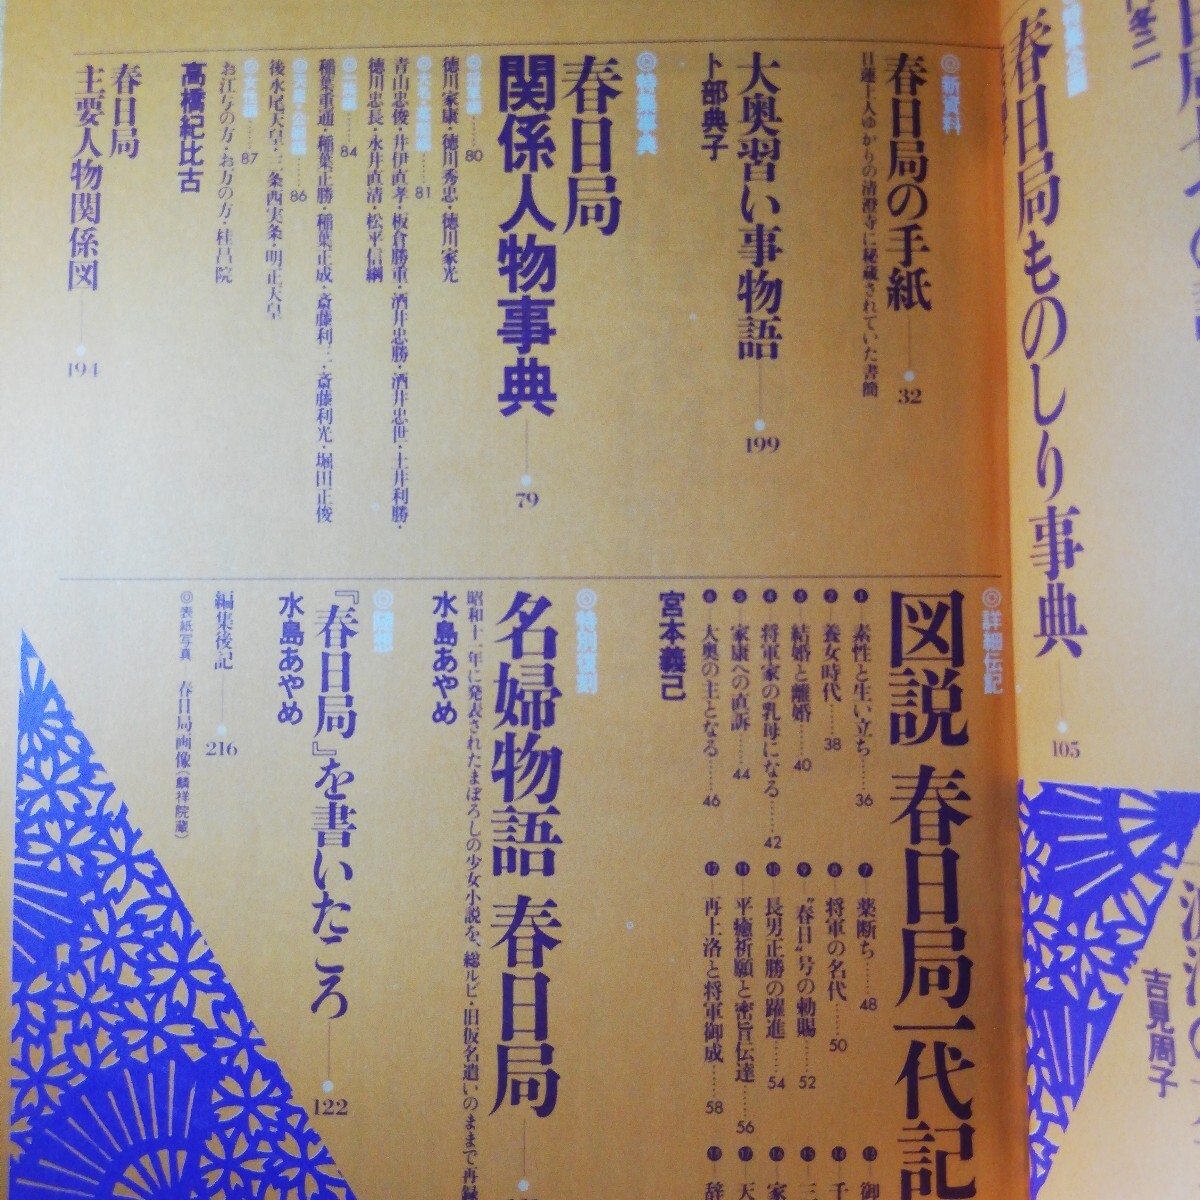 春日局ものしり事典
105
吉見周子
◎新資料
春日局の手紙
32
日蓮上人ゆかりの清澄寺に秘蔵されていた書簡
大奥習い事物語
199
卜部典子
◎特集事典
春日局
関係人物事典
79
80
徳川家康・徳川秀忠・徳川家光
81
青山忠俊・井伊直孝・板倉勝重・酒井忠勝・酒井忠世・土井利勝・
徳川忠長・永井直清・松平信綱
84
稲葉重通・稲葉正勝・稲葉正成・斎藤利三・斎藤利光・堀田正俊
86
後水尾天皇・三条西実条・明正天皇
◎女性編……87
お江与の方・お万の方・桂昌院
高橋紀比古
春日局
主要人物関係図
194
◎詳細伝記
図説 春日局一代記
❶素性と生い立ち……36
❷養女時代……38
❸結婚と離婚……40
❹将軍家の乳母になる……42
❺家康への直訴……44
❻大奥の主となる……46
❼薬断ち……48
❽将軍の名代……50
❾〝春日〟号の勅賜……52
❿長男正勝の躍進……54
⓫平癒祈願と密旨伝達……56
⓬再上洛と将軍御成……58
⓭御
⓮千
⓯三
⓰家
⓱天
⓲辞
宮本義己
◎特別復刻
名婦物語 春日局
昭和十一年に発表されたまぼろしの少女小説を、総ルビ・旧仮名遣いのままで再録
水島あやめ
◎随想
『春日局』を書いたころ
122
水島あやめ
編集後記
216
◎表紙写真 春日局画像(麟祥院蔵)